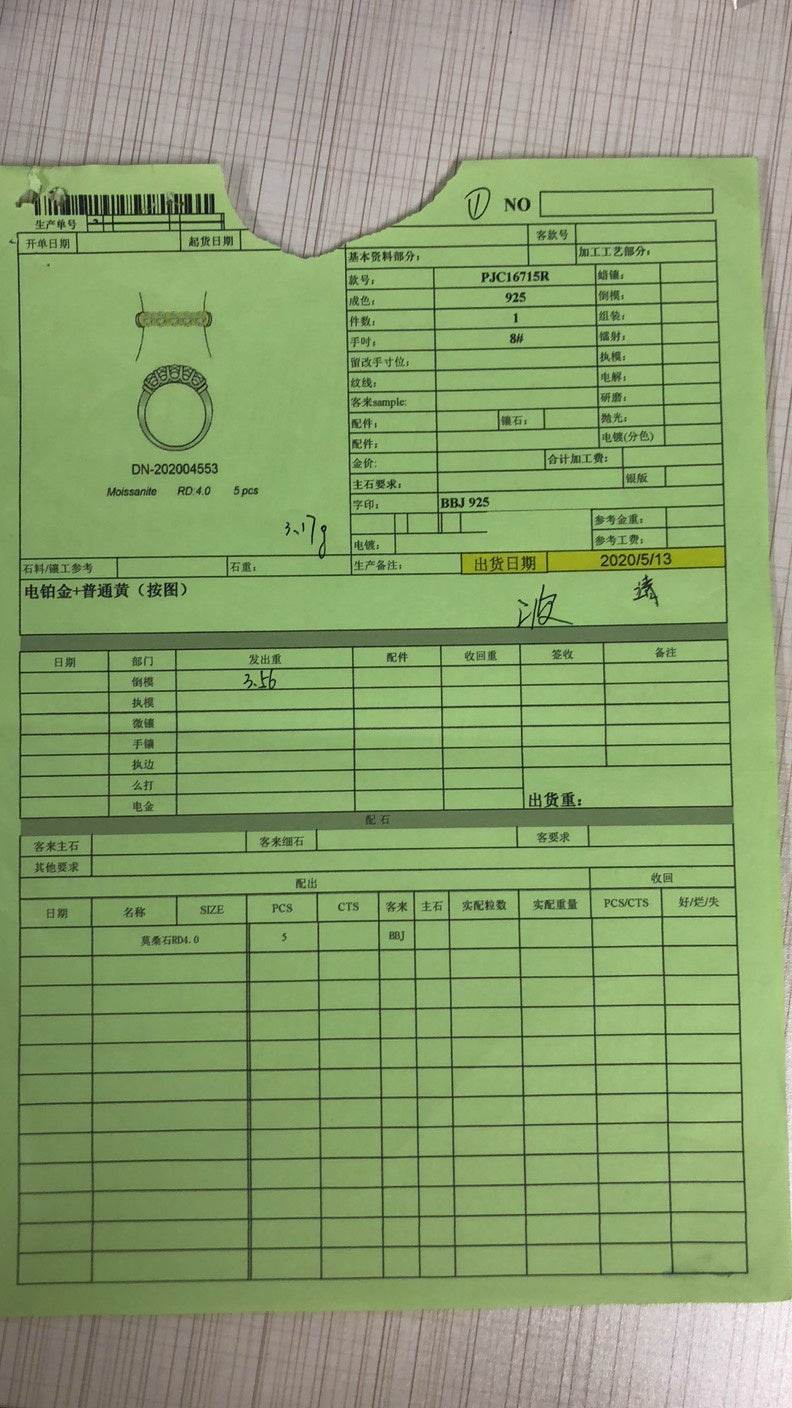 ① NO
生产单号
开单日期 起货日期 客款号
基本资料部分： 加工工艺部分：
款号： PJC16715R 蜡镶：
成色： 925 倒模：
件数： 1 组装：
手吋： 8# 镭射：
留改手寸位： 执模：
纹线： 电解：
客来sample: 研磨：
配件： 镶石： 抛光：
配件： 电镀(分色)
金价: 合计加工费：
主石要求： 银版
字印： BBJ 925
参考金重：
电镀： 参考工费：
DN-202004553
Moissanite RD:4.0 5 pcs
3.17g
石料/镶工参考 石重： 生产备注： 出货日期 2020/5/13
电铂金+普通黄（按图）
波
日期 部门 发出重 配件 收回重 签收 备注
倒模 3.56
执模
微镶
手镶
执边
么打
电金 出货重：
配石
客来主石 客来细石 客要求
其他要求
配出 收回
日期 名称 SIZE PCS CTS 客来 主石 实配粒数 实配重量 PCS/CTS 好/烂/失
莫桑石RD4.0 5 BBJ